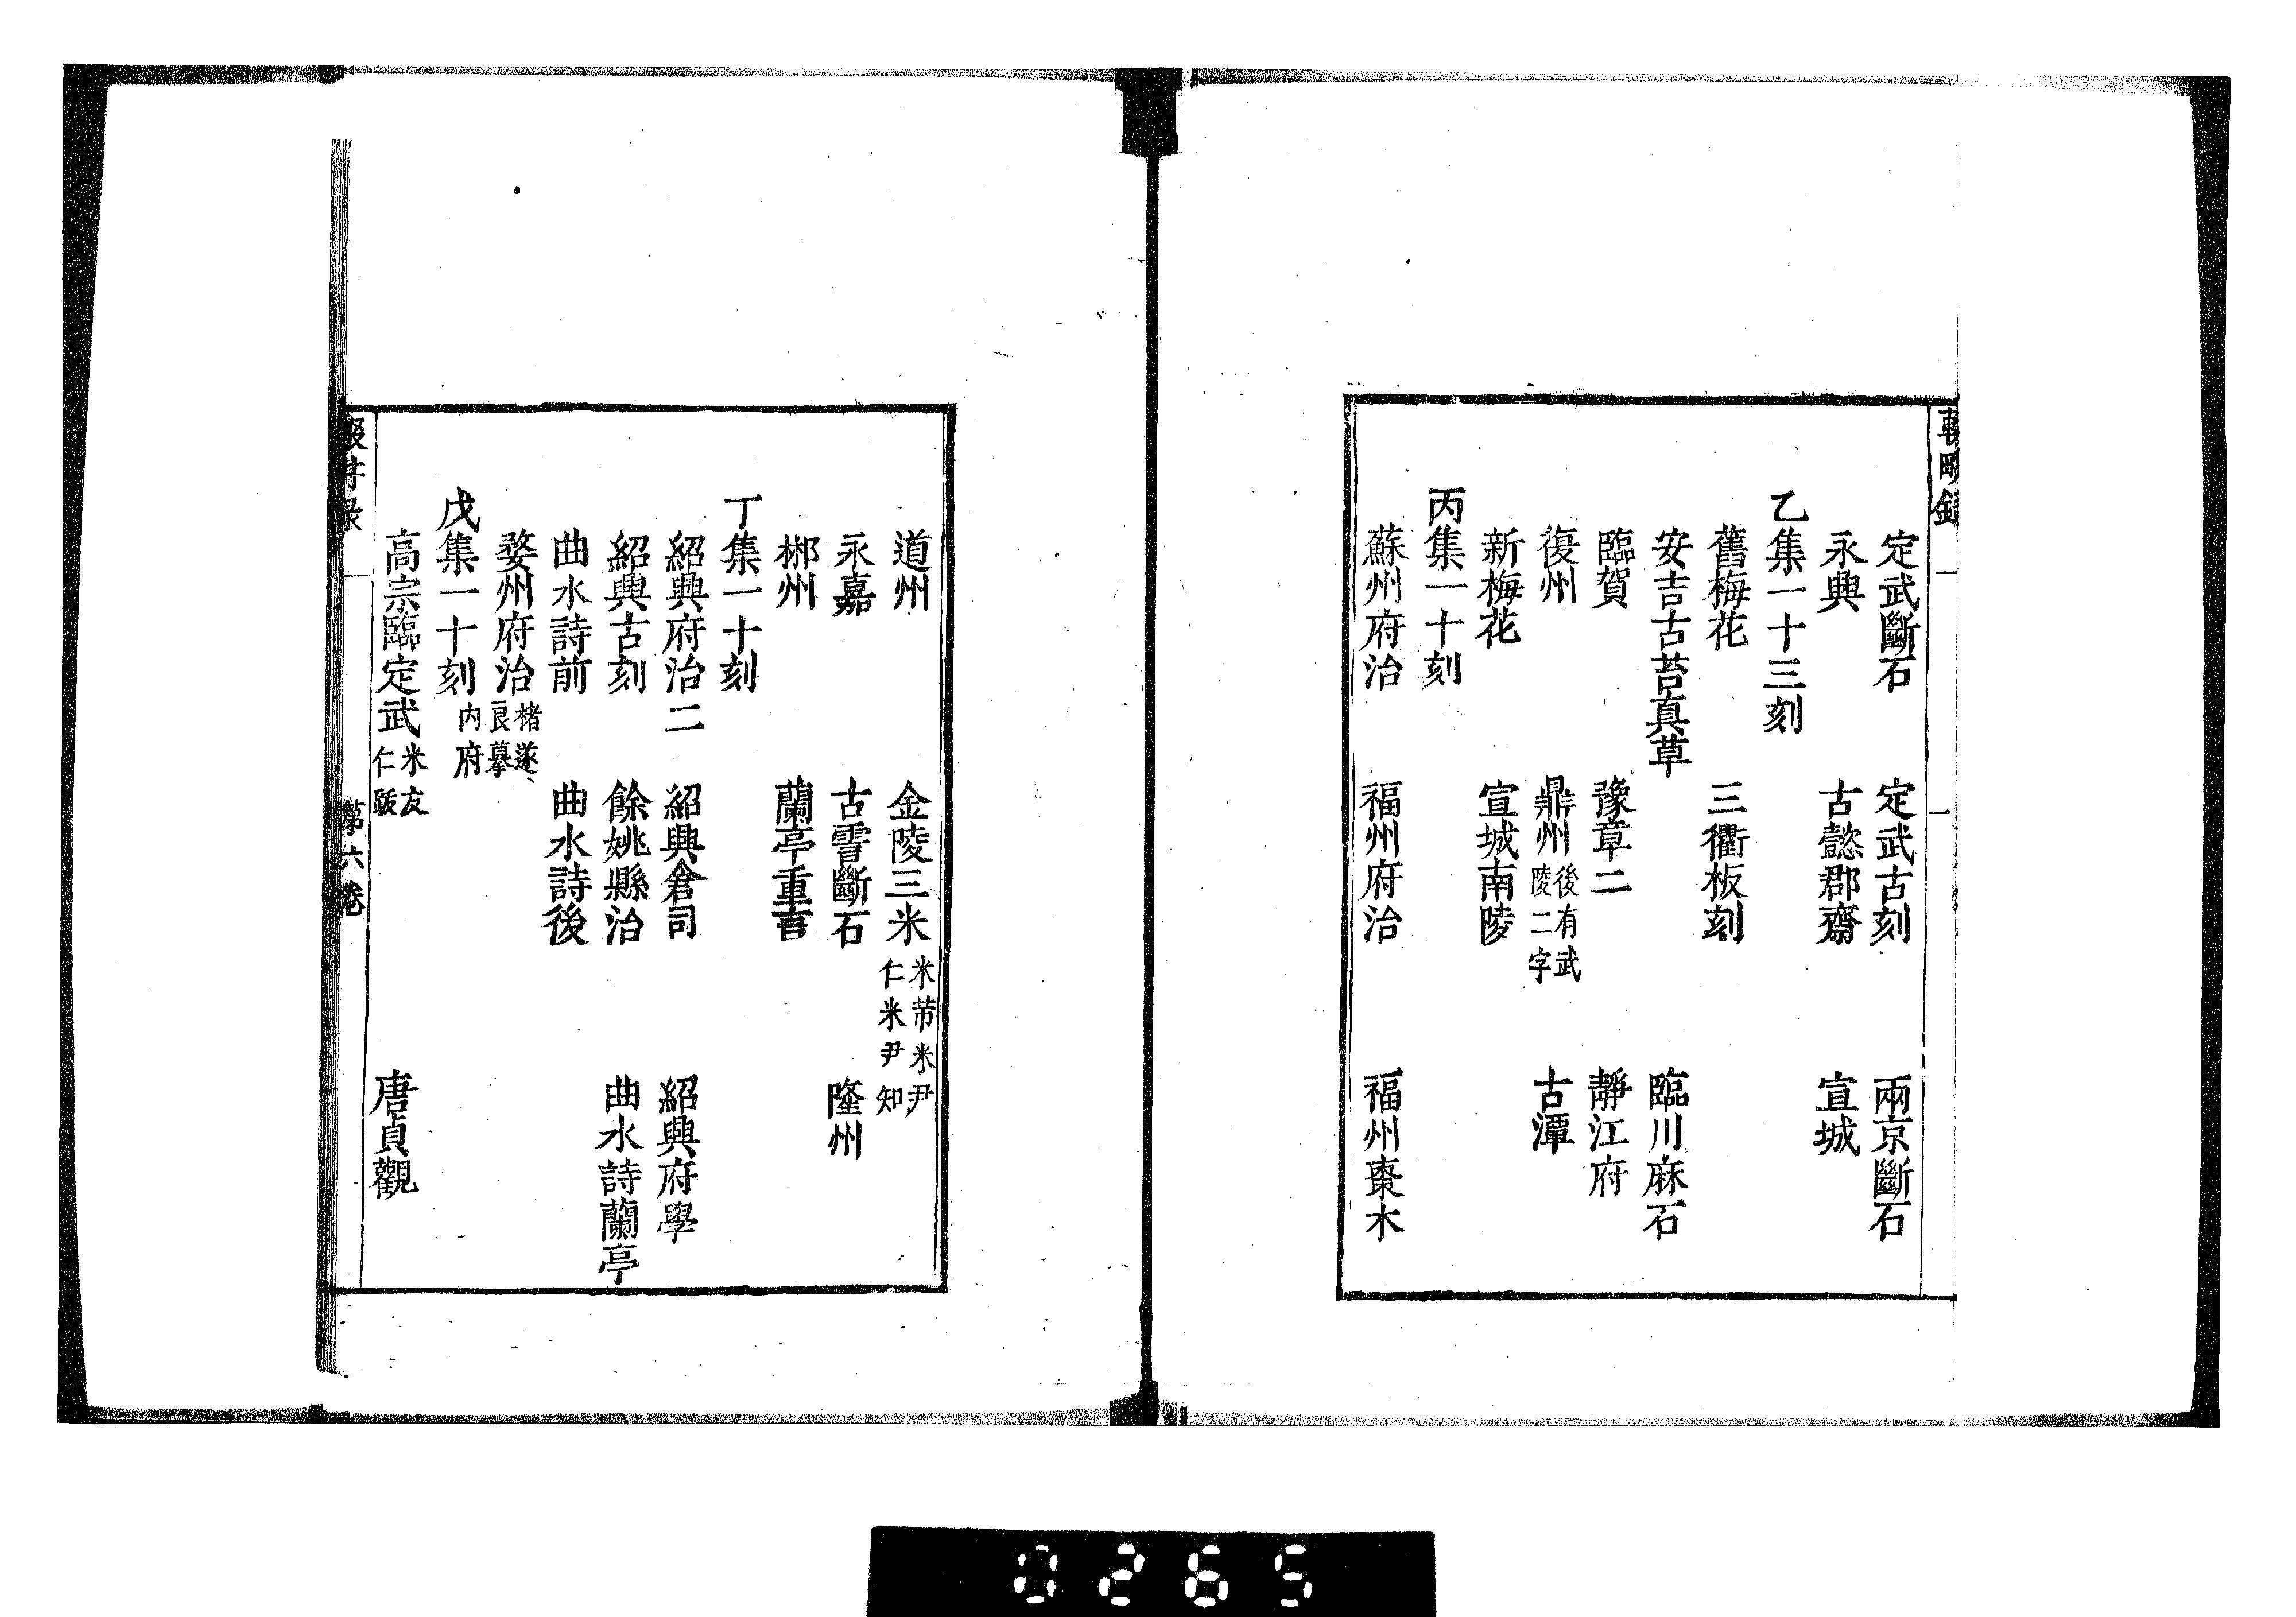 輟畊錄
定武斷石　定武古刻　兩京斷石
永興　古懿郡齋　宣城
乙集一十三刻
舊梅花　三衢板刻
安吉古苔真草　臨川麻石
臨賀　豫章二　靜江府
復州　鼎州後有武陵二字　古潭
新梅花　宣城南陵
丙集一十刻
蘇州府治　福州府治　福州棗木
道州　金陵三米米芾米尹仁米尹知
永嘉　古雪斷石　隆州
郴州　蘭亭重言
丁集一十刻
紹興府治二　紹興倉司　紹興府學
紹興古刻　餘姚縣治　曲水詩蘭亭
曲水詩前　曲水詩後
婺州府治楮遂良摹
戊集一十刻內府
高宗臨定武米友仁跋　唐貞觀
第六卷
0265